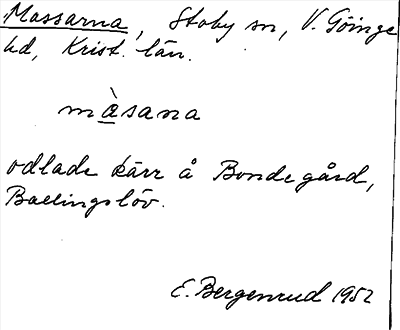 Massarna, Stoby sn, V. Göinge
hd, Krist. län.
màsana
odlade kärr å Bondegård,
Ballingslöv.
E. Bergenrud 1952